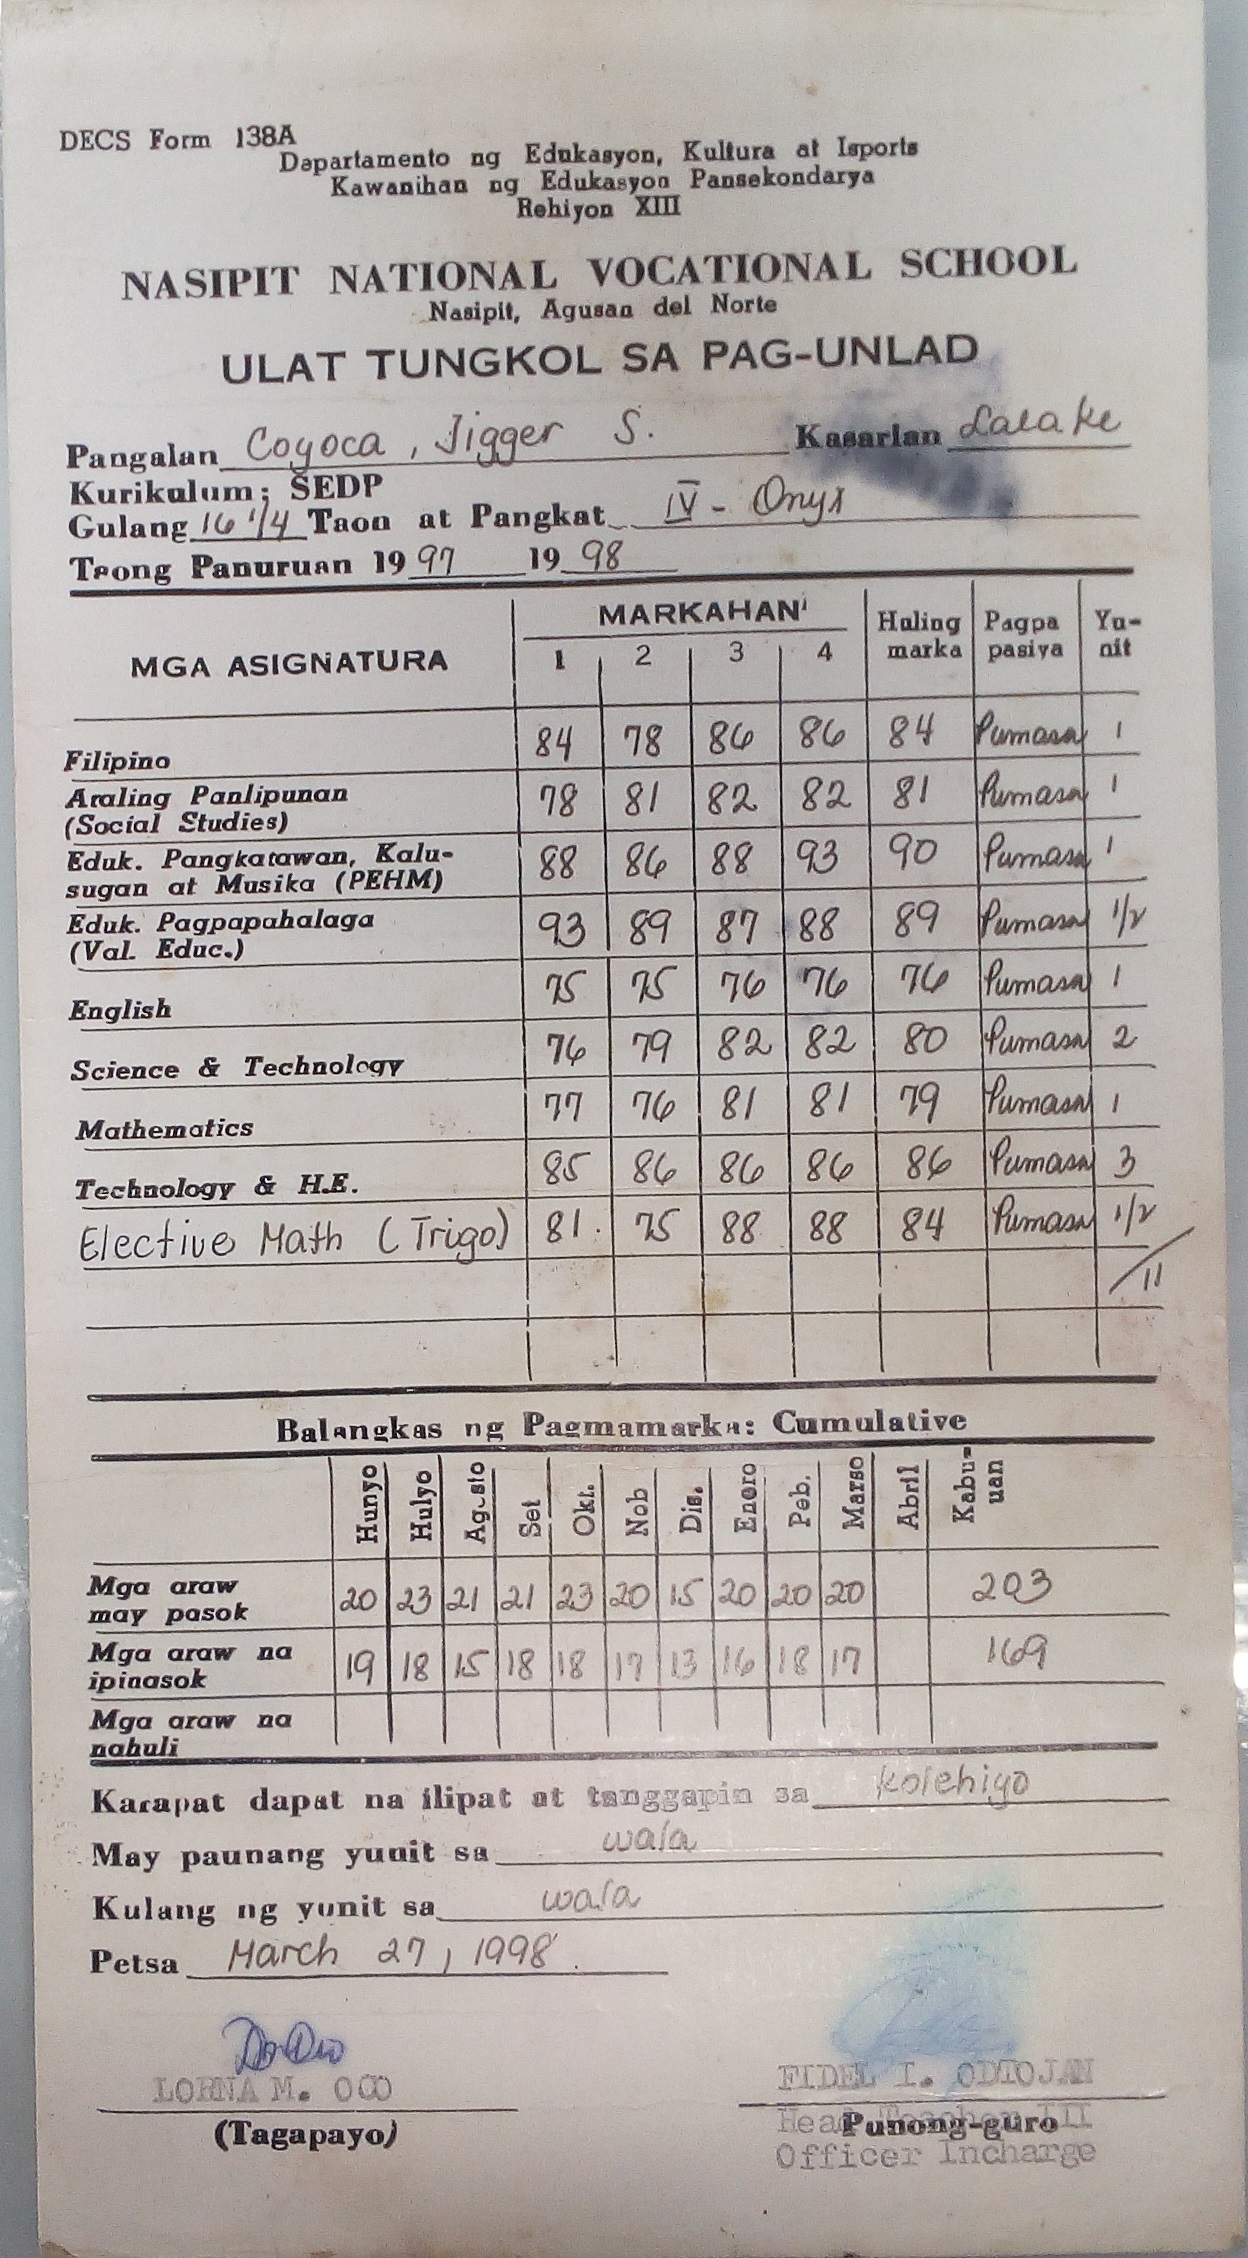 DECS Form 138A
Departamento ng Edukasyon, Kultura at Isports
Kawanihan ng Edukasyon Pansekondarya
Rehiyon XIII
NASIPIT NATIONAL VOCATIONAL SCHOOL
Nasipit, Agusan del Norte
ULAT TUNGKOL SA PAG-UNLAD
Pangalan Coyoca, Jigger S. Kasarian Lalake
Kurikulum; SEDP
Gulang 16 1/4 Taon at Pangkat IV - Onyx
Taong Panuruan 1997 1998
MGA ASIGNATURA MARKAHAN Huling marka Pagpapasiya Yu-nit
1 2 3 4
Filipino 84 78 86 86 84 Pumasa 1
Araling Panlipunan (Social Studies) 78 81 82 82 81 Pumasa 1
Eduk. Pangkatawan, Kalu-
sugan at Musika (PEHM) 88 86 88 93 90 Pumasa 1
Eduk. Pagpapahalaga (Val. Educ.) 93 89 87 88 89 Pumasa 1/2
English 75 75 76 76 76 Pumasa 1
Science & Technology 76 79 82 82 80 Pumasa 2
Mathematics 77 76 81 81 79 Pumasa 1
Technology & H.E. 85 86 86 86 86 Pumasa 3
Elective Math (Trigo) 81 75 88 88 84 Pumasa 1/2
11
Balangkas ng Pagmamarka: Cumulative
Hunyo Hulyo Agosto Set Okt. Nob Dis. Enero Peb. Marso Abril Kabu-uan
Mga araw may pasok 20 23 21 21 23 20 15 20 20 20 203
Mga araw na ipinasok 19 18 15 18 18 17 13 16 18 17 169
Mga araw na nahuli
Karapat dapat na ilipat at tanggapin sa kolehiyo
May paunang yunit sa wala
Kulang ng yunit sa wala
Petsa March 27, 1998
LORNA M. OCO
(Tagapayo)
FIDEL I. ODTOJAN
Head Teacher III
Punong-guro
Officer Incharge